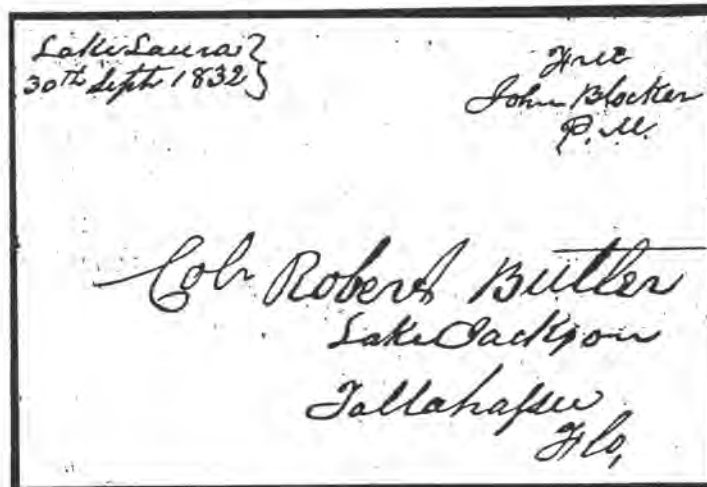 Lake Laura }
30th Sept 1832 }
Free
John Blocker
P. M.
Coln Robert Butler
Lake Jackson
Tallahassee
Flo,